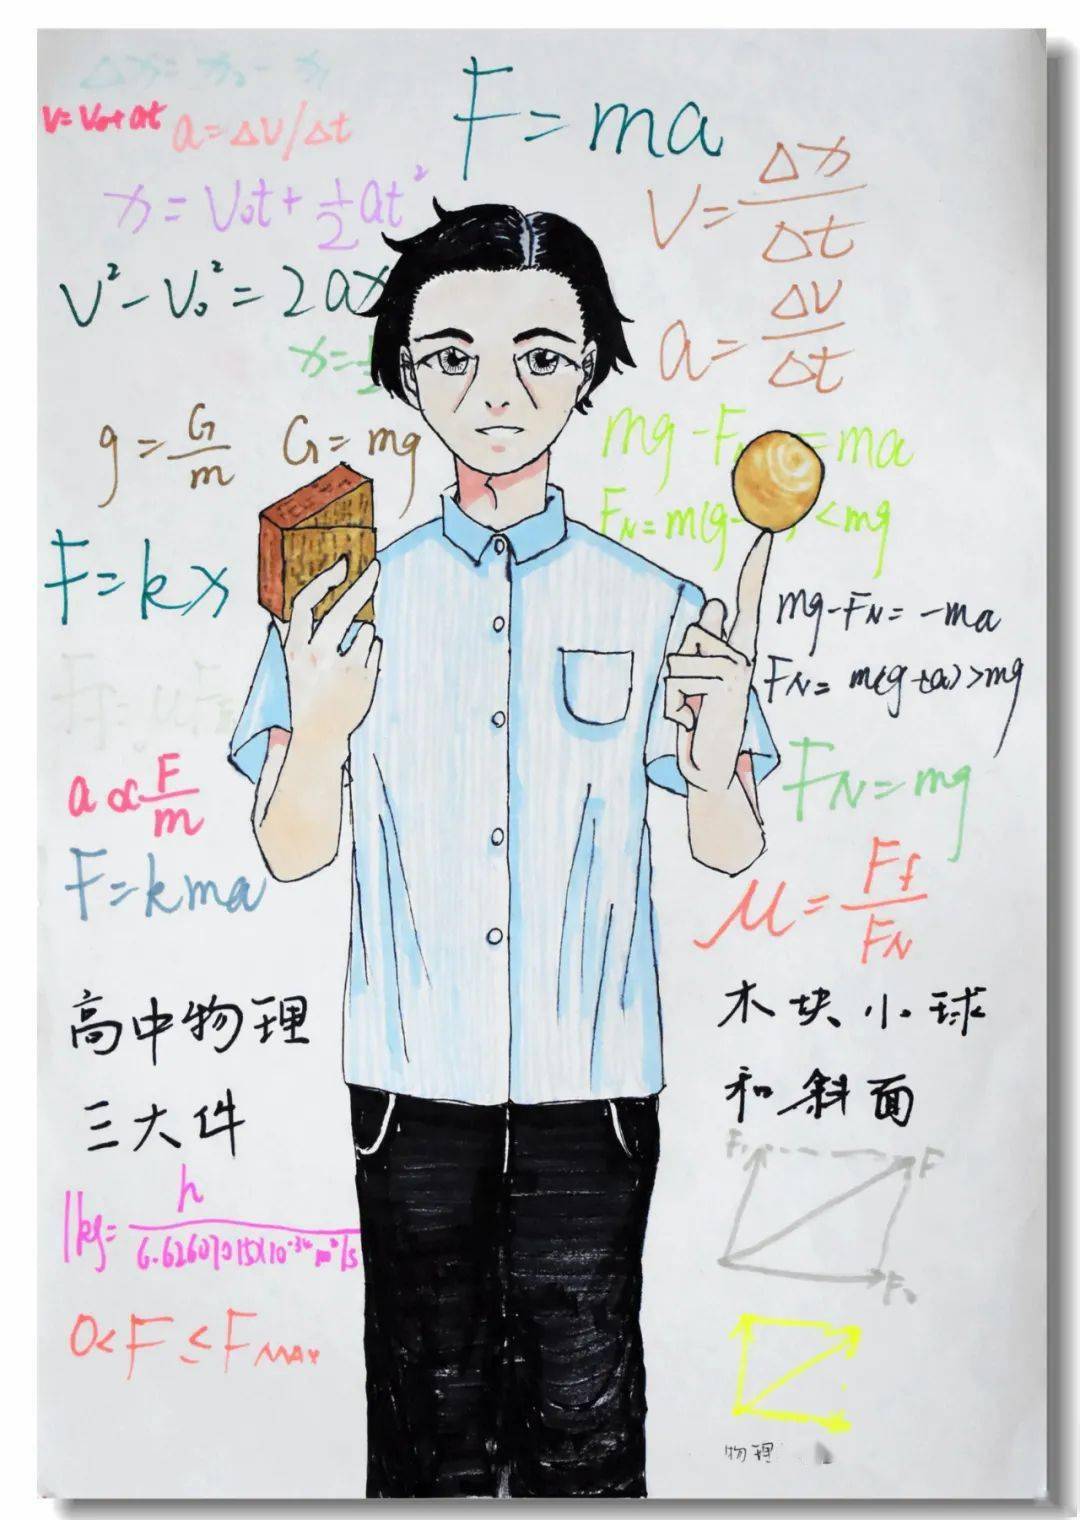 Δx = x₂ - x₁
v = v₀ + at
a = Δv/Δt
F = ma
x = v₀t + 1/2 at²
v = Δx/Δt
v² - v₀² = 2ax
a = Δv/Δt
x = 1/2
g = G/m G = mg
mg - F = ma
F_N = m(g- <mg
F = kx
mg - F_N = -ma
F_N = m(g+a) > mg
a ∝ F/m
F_N = mg
F = kma
μ = F_f/F_N
高中物理
三大件
木块小球
和斜面
1kg = h/6.62607015×10⁻³⁴m²/s
F
0 < F ≤ F_MAX
物理